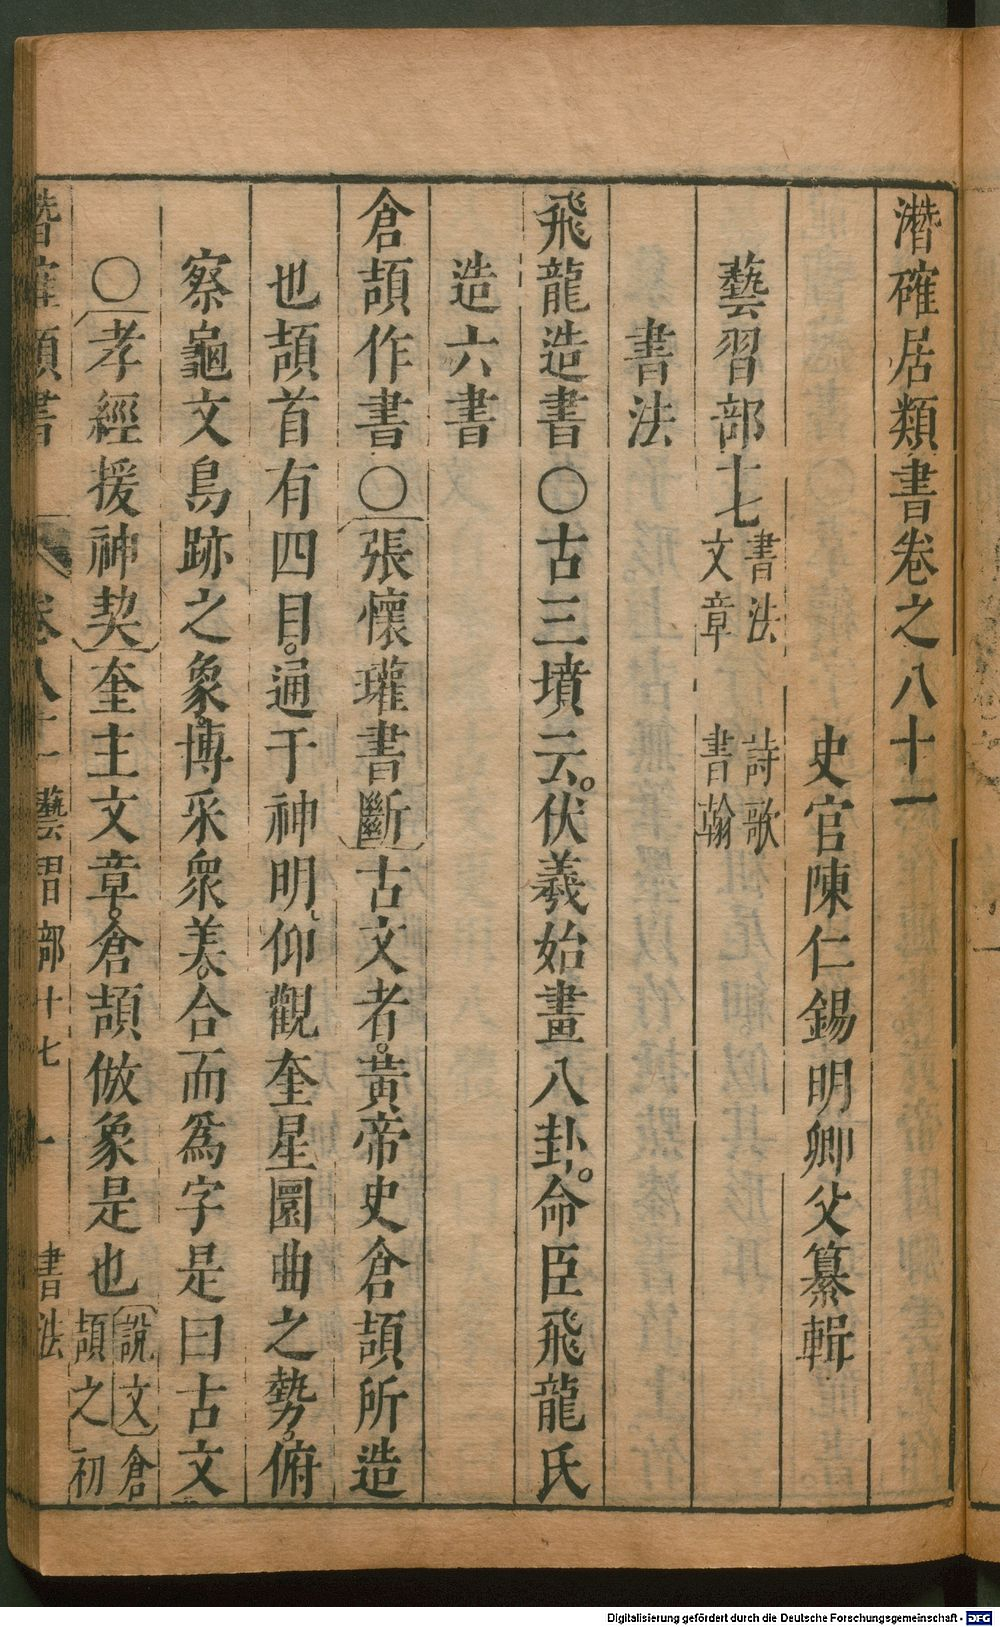 潛確居類書卷之八十一
史官陳仁錫明卿父纂輯
藝習部十七 書法 詩歌
文章 書翰
書法
飛龍造書○古三墳云。伏羲始畫八卦。命臣飛龍氏
造六書
倉頡作書○張懷瓘書斷古文者。黃帝史倉頡所造
也頡首有四目。通于神明。仰觀奎星圜曲之勢。俯
察龜文鳥跡之象。博采衆美。合而爲字是曰古文
○孝經援神契奎主文章。倉頡倣象是也 說文倉
頡之初
潛確類書 卷八十一 藝習部十七 一 書法
Digitalisierung gefördert durch die Deutsche Forschungsgemeinschaft - DFG